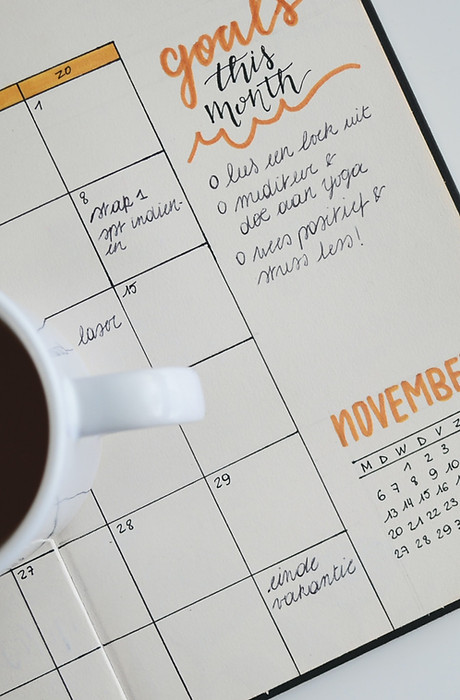 goals
this
month
o lees een boek uit
o mediteer &
doe aan yoga
o wees positief &
stress less!
ZO
1
8
stap 1
spt indien-
en
15
laser
29
28
27
einde
vakantie
NOVEMBE
M D W D V Z
1 2 3
6 7 8 9 10
13 14 15 16
20 21 22 23
27 28 29